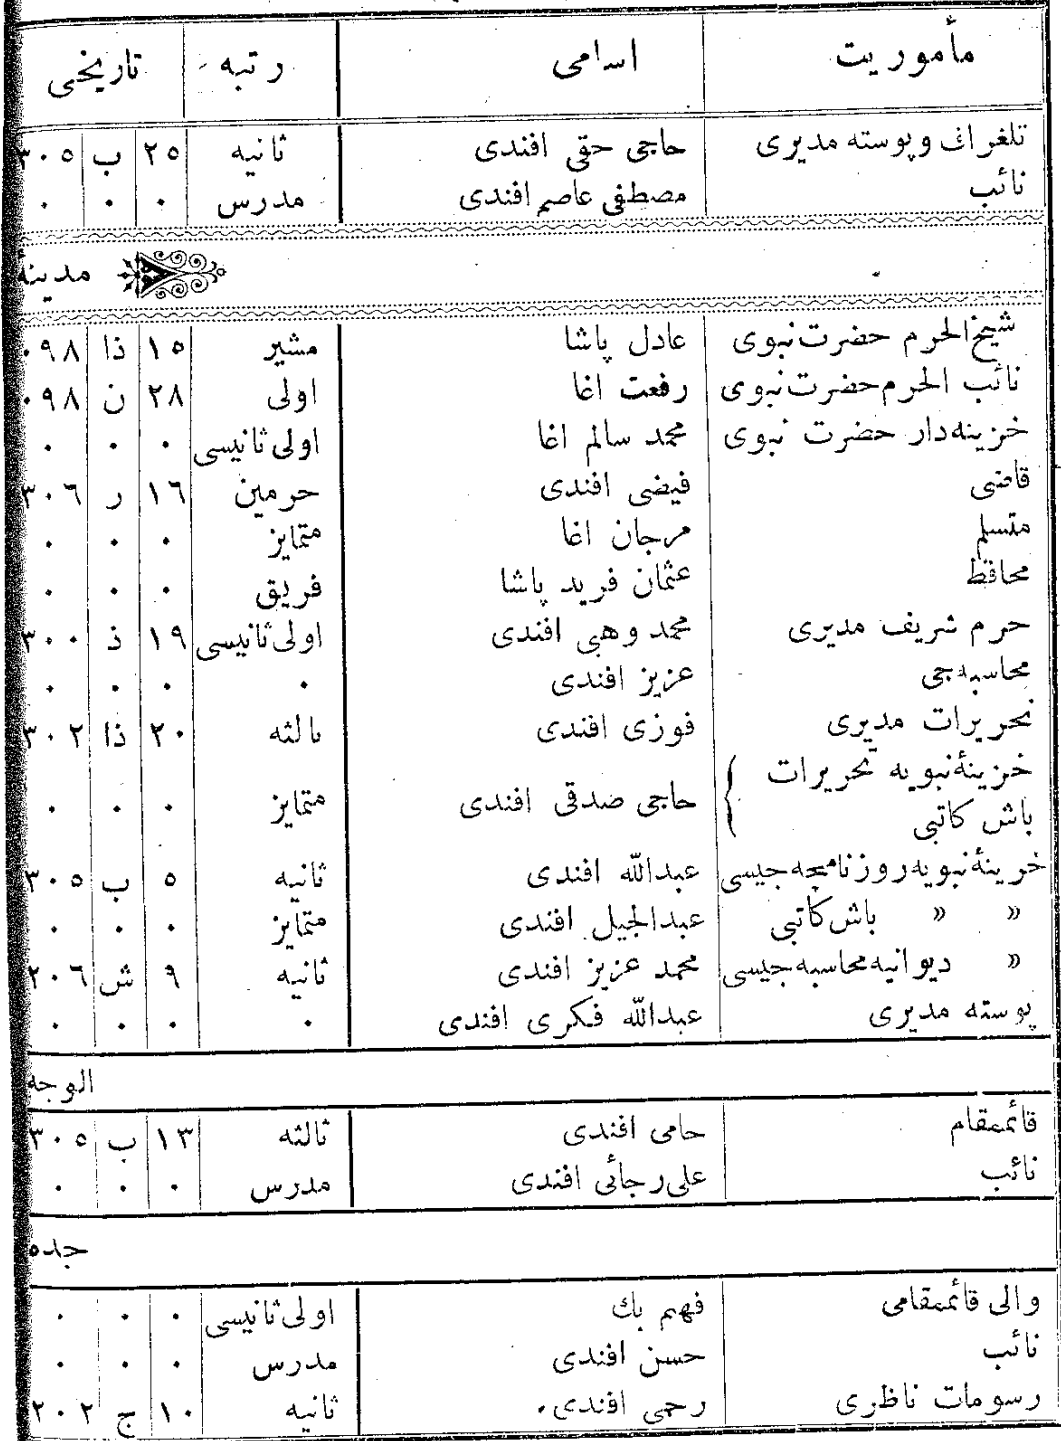 مأموریت اسامی رتبه تاریخی
تلغراف وپوسته مدیری حاجی حقی افندی ثانیه ٢٥ ب ٣٠٥
نائب مصطفی عاصم افندی مدرس ٠ ٠ ٠
مدینهٔ
شیخ‌الحرم حضرت‌نبوی عادل پاشا مشیر ١٥ ذا ٠٩٨
نائب الحرم‌حضرت‌نبوی رفعت اغا اولی ٢٨ ن ٠٩٨
خزینه‌دار حضرت نبوی محمد سالم اغا اولی‌ثانیسی ٠ ٠ ٠
قاضی فیضی افندی حرمین ١٦ ر ٣٠٦
متسلم مرجان اغا متمایز ٠ ٠ ٠
محافظ عثمان فرید پاشا فریق ٠ ٠ ٠
حرم شریف مدیری محمد وهبی افندی اولی‌ثانیسی ١٩ ذ ٣٠٠
محاسبه‌جی عزیز افندی ٠ ٠ ٠ ٠
تحریرات مدیری فوزی افندی ثالثه ٢٠ ذا ٣٠٢
خزینهٔ‌نبویه تحریرات
باش کاتبی } حاجی صدقی افندی متمایز ٠ ٠ ٠
خزینهٔ‌نبویه‌روزنامچه‌جیسی عبدالله افندی ثانیه ٥ ب ٣٠٥
» » باش‌کاتبی عبدالجیل افندی متمایز ٠ ٠ ٠
» دیوانیه‌محاسبه‌جیسی محمد عزیز افندی ثانیه ٩ ش ٢٠٦
پوسته مدیری عبدالله فکری افندی ٠ ٠ ٠ ٠
الوجه
قائممقام حامی افندی ثالثه ١٣ ب ٣٠٥
نائب علی‌رجائی افندی مدرس ٠ ٠ ٠
جده
والی قائممقامی فهیم بك اولی‌ثانیسی ٠ ٠ ٠
نائب حسن افندی مدرس ٠ ٠ ٠
رسومات ناظری رحمی افندی٠ ثانیه ١٠ ج ٢٠٢